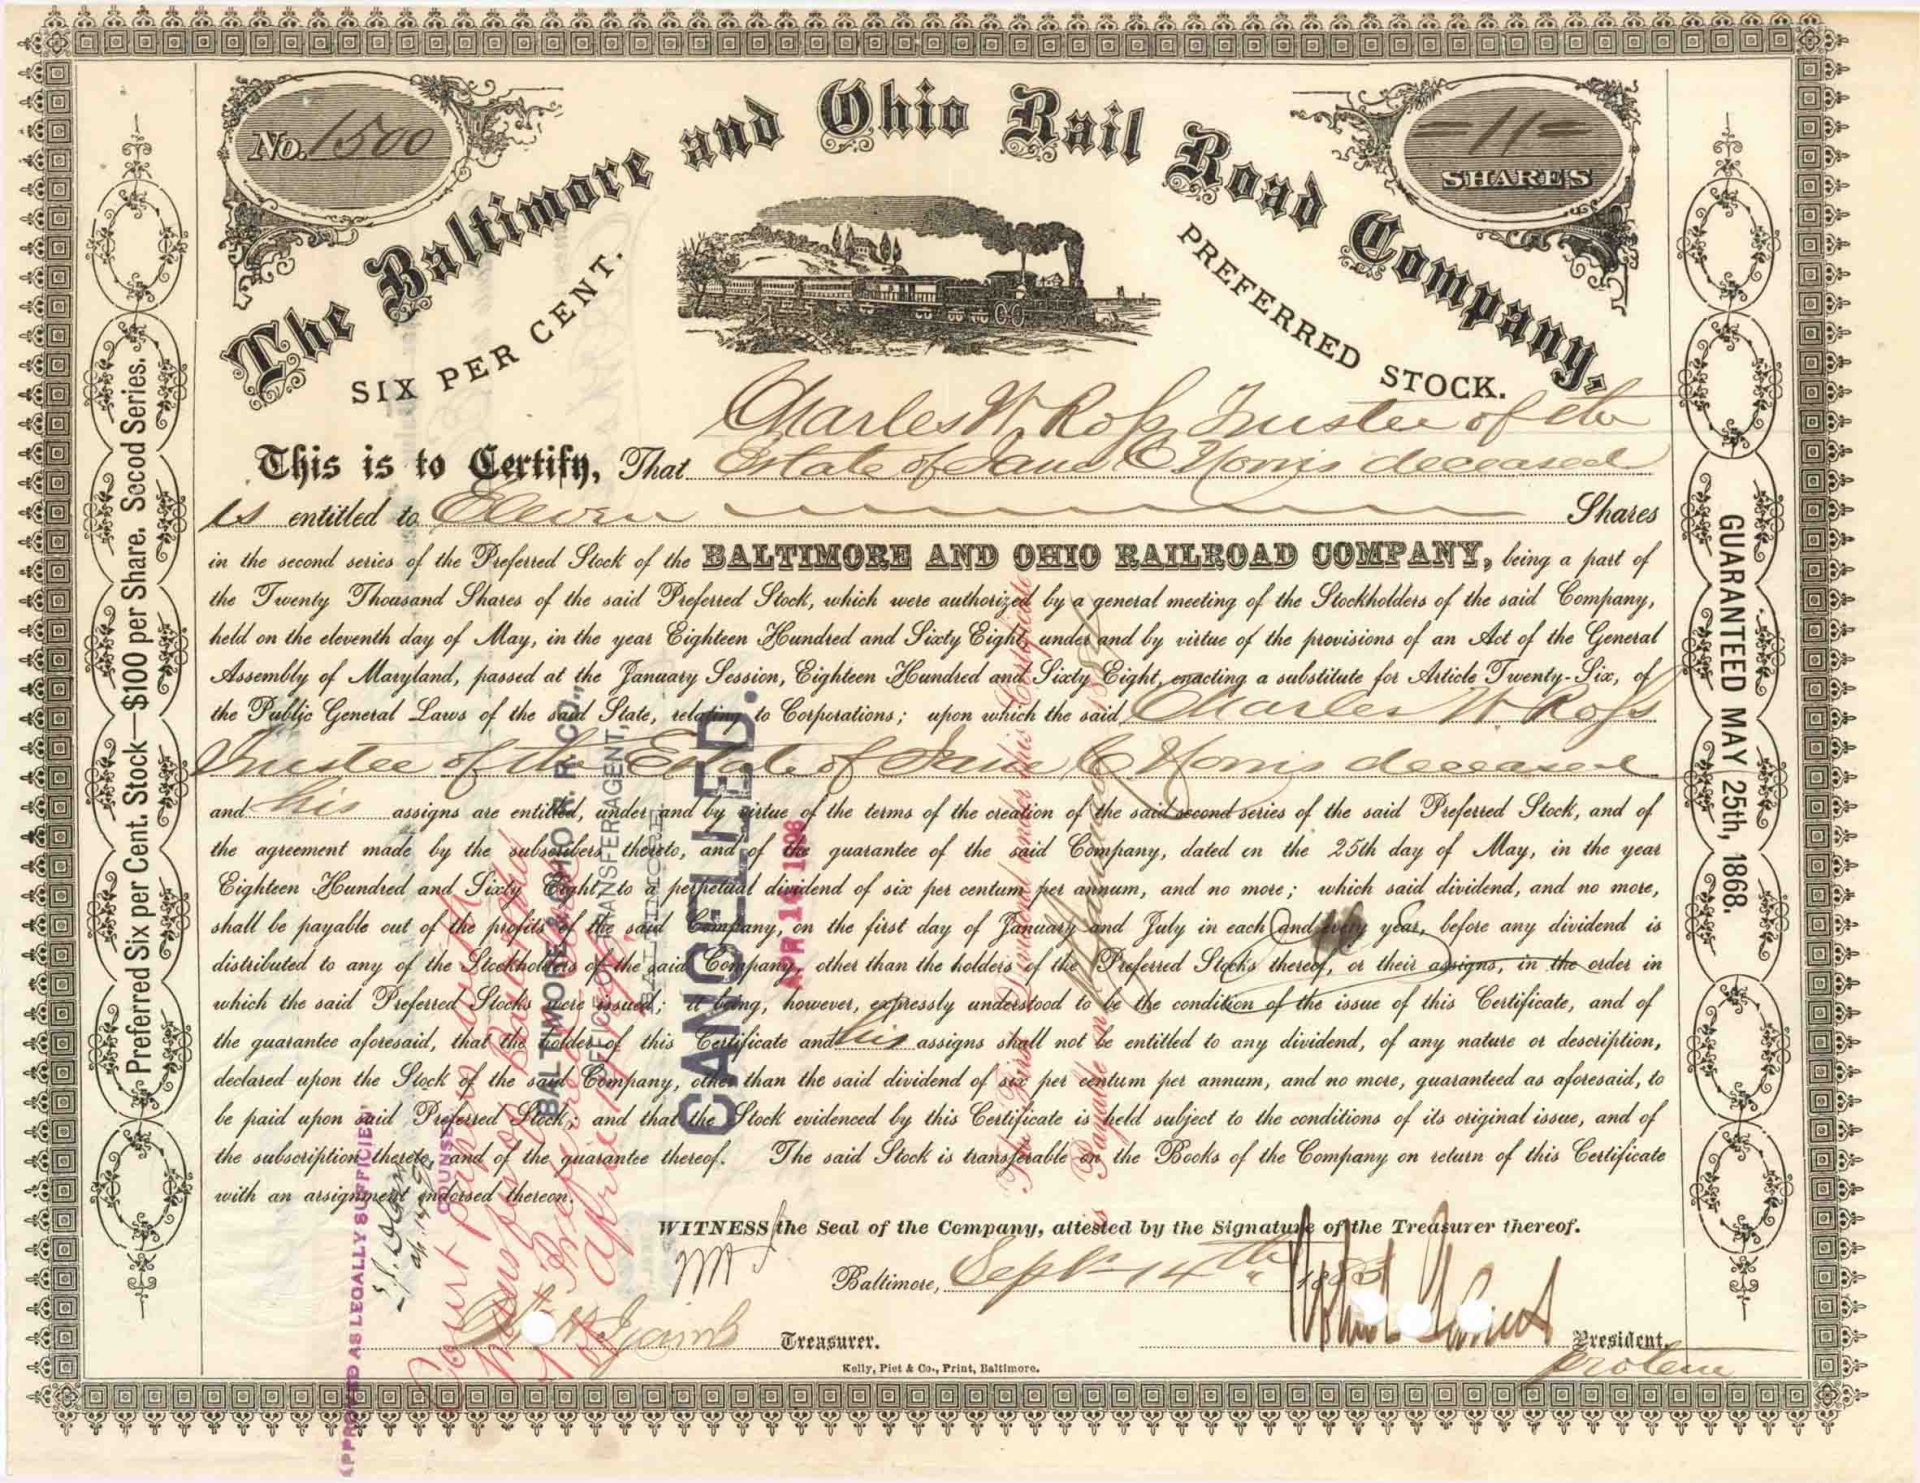 No. 1500
=11=
SHARES
The Baltimore and Ohio Rail Road Company,
SIX PER CENT.
PREFERRED STOCK.
Charles W. Ross Trustee of the
This is to Certify, That Estate of Jane C Norris deceased
is entitled to Eleven Shares
in the second series of the Preferred Stock of the BALTIMORE AND OHIO RAILROAD COMPANY, being a part of
the Twenty Thousand Shares of the said Preferred Stock, which were authorized by a general meeting of the Stockholders of the said Company,
held on the eleventh day of May, in the year Eighteen Hundred and Sixty Eight, under and by virtue of the provisions of an Act of the General
Assembly of Maryland, passed at the January Session, Eighteen Hundred and Sixty Eight, enacting a substitute for Article Twenty-Six, of
the Public General Laws of the said State, relating to Corporations; upon which the said Charles W. Ross
Trustee of the Estate of Jane C Norris deceased
and his assigns are entitled, under and by virtue of the terms of the creation of the said second series of the said Preferred Stock, and of
the agreement made by the subscribers thereto, and of the guarantee of the said Company, dated on the 25th day of May, in the year
Eighteen Hundred and Sixty Eight, to a perpetual dividend of six per centum per annum, and no more; which said dividend, and no more,
shall be payable out of the profits of the said Company, on the first day of January and July in each and every year, before any dividend is
distributed to any of the Stockholders of the said Company, other than the holders of the Preferred Stocks thereof, or their assigns, in the order in
which the said Preferred Stocks were issued; it being, however, expressly understood to be the condition of the issue of this Certificate, and of
the guarantee aforesaid, that the holder of this Certificate and his assigns shall not be entitled to any dividend, of any nature or description,
declared upon the Stock of the said Company, other than the said dividend of six per centum per annum, and no more, guaranteed as aforesaid, to
be paid upon said Preferred Stock; and that the Stock evidenced by this Certificate is held subject to the conditions of its original issue, and of
the subscription thereto, and of the guarantee thereof. The said Stock is transferable on the Books of the Company on return of this Certificate
with an assignment endorsed thereon.
WITNESS the Seal of the Company, attested by the Signature of the Treasurer thereof.
Baltimore, Sept 14th 1883
Treasurer.
President
pro tem
Kelly, Piet & Co., Print, Baltimore.
Preferred Six per Cent. Stock—$100 per Share. Secod Series.
GUARANTEED MAY 25th, 1868.
The First Dividend under this Certificate
is Payable on January 1884
BALTIMORE & OHIO R. R. CO.,
OFFICE OF TRANSFER AGENT,
CANCELLED.
APR 14 1898
APPROVED AS LEGALLY SUFFICIENT
COUNSEL